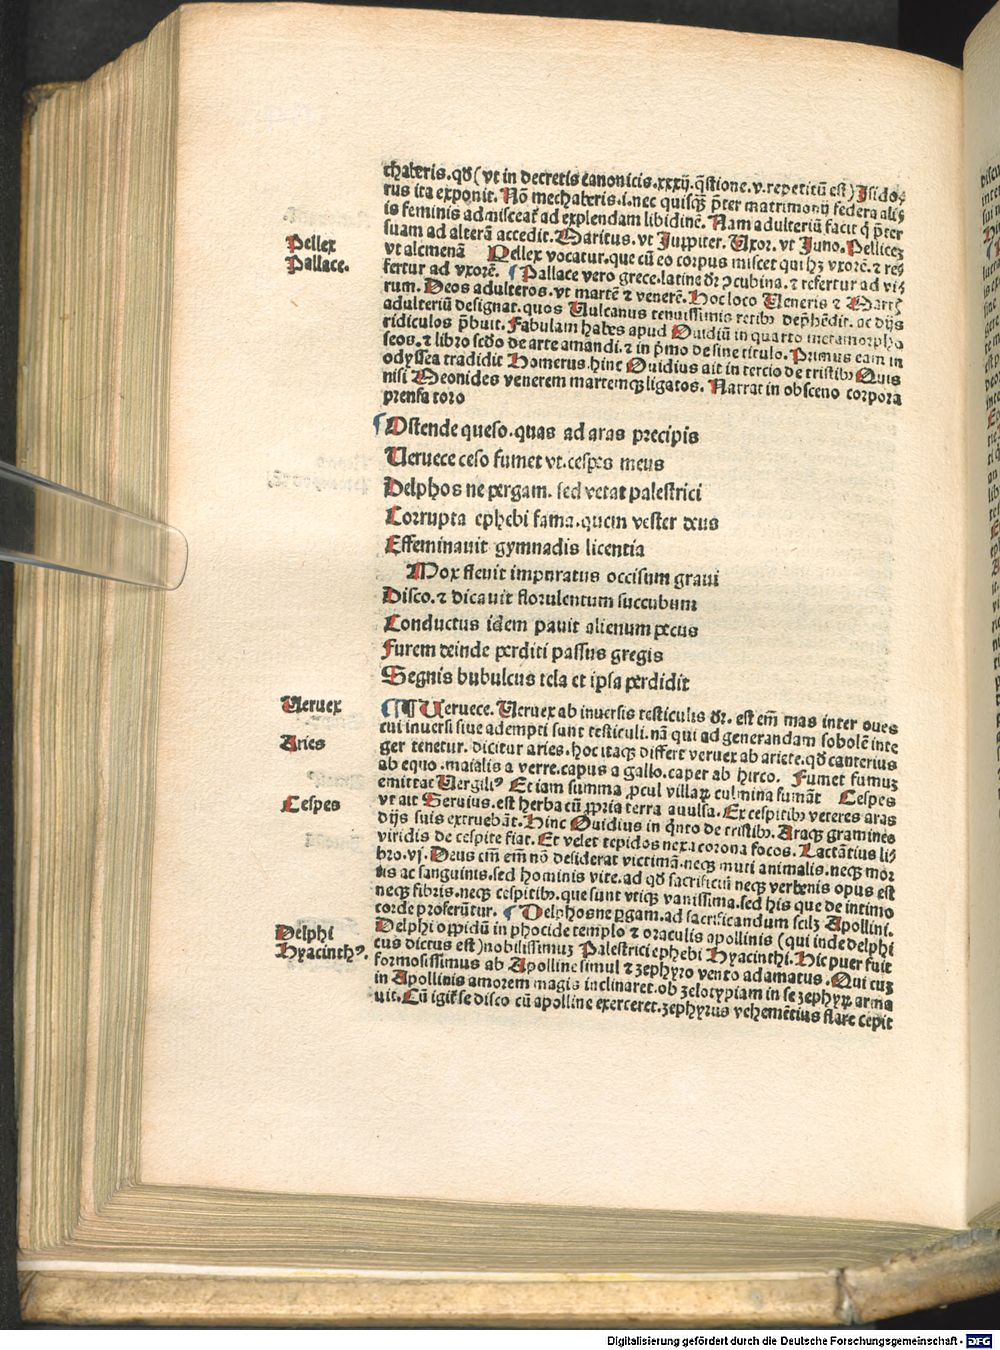 chaberis.qđ (vt in decretis canonicis.xxxij.q̄stione.v.repetitū est) Isido⸗
rus ita exponit. Nō mechaberis.i.nec quisq̄ p̄ter matrimonij federa alijs
is feminis admisceat ad explendam libidinē. Nam adulteriū facit q̄ p̄ter
suam ad alterā accedit. Maritus. vt Iuppiter. Uxor. vt Juno. Pellices
vt alcmenā Pellex vocatur.que cū eo corpus miscet qui hꝫ vxorē.⁊ res
fertur ad vxorē. ¶ Pallace vero grece.latine dr̄ ꝯcubina.⁊ refertur ad vi⸗
rum. Deos adulteros.vt martē ⁊ venerē. Hoc loco Veneris ⁊ Martis
adulteriū designat.quos Vulcanus tenuissimis retibꝰ dep̄hēdit. ac dijs
ridiculos p̄buit. Fabulam habes apud Ouidiū in quarto metamorpho
seos.⁊ libro scđo de arte amandi.⁊ in p̄mo de sine titulo. Primus eam in
odyssea tradidit Homerus.hinc Ouidius ait in tercio de tristibꝰ Quis
nisi Meonides venerem martemqꝫ ligatos. Narrat in obsceno corpora
prensa toro
¶ Ostende queso.quas ad aras precipis
Ueruece ceso fumet vt.cespes meus
Delphos ne pergam. sed vetat palestrici
Corrupta ephebi fama.quem vester deus
Effeminauit gymnadis licentia
Mox fleuit impuratus occisum graui
Disco.⁊ dicauit florulentum succubum
Conductus idem pauit alienum pecus
Furem deinde perditi passus gregis
Segnis bubulcus tela et ipsa perdidit
¶¶ Ueruece. Ueruex ab inuersis testiculis dr̄. est em̄ mas inter oues
cui inuersi siue adempti sunt testiculi.nā qui ad generandam sobolē inte
ger tenetur. dicitur aries.hoc itaqꝫ differt veruex ab ariete.qđ canterius
ab equo.maialis a verre.capus a gallo.caper ab hirco. Fumet fumuꝫ
emittat Uergiliꝰ Et iam summa ꝓcul villaꝝ culmina fumāt Cespes
vt ait Seruius.est herba cū ꝓpria terra auulsa. Ex cespitibꝰ veteres aras
dijs suis extruebāt. Hinc Ouidius in q̄nto de tristibꝰ. Araqꝫ gramineo
viridis de cespite fiat. Et velet tepidos nexa corona focos. Lactātius li⸗
bro.vj. Deus cm̄ em̄ nō desiderat victimā.neqꝫ muti animalis.neqꝫ mor
tis ac sanguinis.sed hominis vite.ad qđ sacrificiū neqꝫ verbenis opus est
neqꝫ fibris.neqꝫ cespitibꝰ.que sunt vtiqꝫ vanissima.sed his que de intimo
corde proferūtur. ¶ Delphos ne ꝑgam.ad sacrificandum scilꝫ Apollini.
Delphi oppidū in phocide templo ⁊ oraculis apollinis (qui inde delphi
cus dictus est) nobilissimuꝫ Palestrici ephebi Hyacinthi. Hic puer fuit
formosissimus ab Apolline simul ⁊ zephyro vento adamatus. Qui cuꝫ
in Apollinis amorem magis inclinaret.ob zelotypiam in se zephyꝝ arma
uit. Cū igit̄ se disco cū apolline exerceret.zephyrus vehemētius flare cepit
Pellex
Pallace.
Ueruex
Aries
Cespes
Delphi
Hyacinthꝰ.
Digitalisierung gefördert durch die Deutsche Forschungsgemeinschaft - DFG